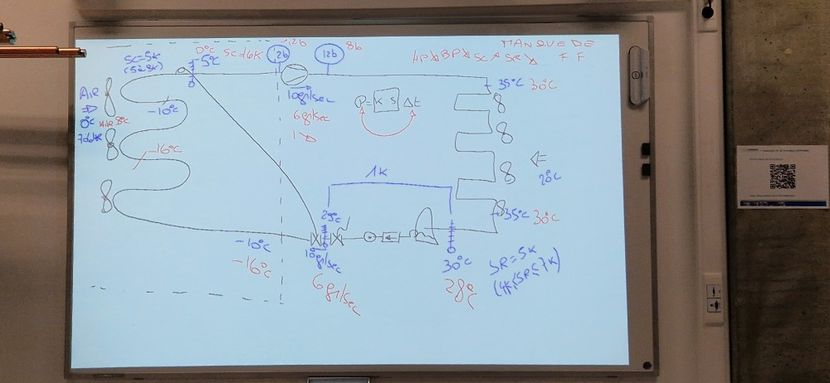 MANQUE DE
F F
HP↘ BP↘ SC↗ SR↘
SC=5K
(5≤8K)
0°C
-5°C
SC=16K
2b
1,2b
12b
8b
AIR
0°C
-10°C
-16°C
10gr/sec
6gr/sec
P= K S Δt
35°C 30°C
20°C
1K
29°C
35°C 30°C
-10°C
-16°C
10gr/sec
6gr/sec
30°C
28°C
SR=5K
(4K≤SR≤7K)